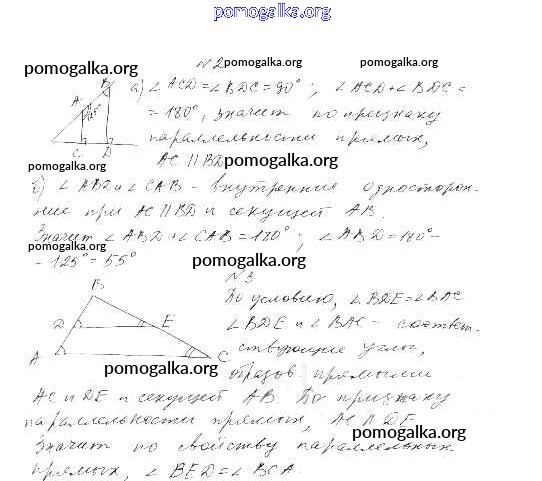 pomogalka.org
№2 pomogalka.org pomogalka.org
pomogalka.org
а) ∠ACD = ∠BDC = 90°; ∠ACD + ∠BDC =
= 180°, значит по признаку
параллельности прямых,
AC || BD pomogalka.org
A B 125° C D
pomogalka.org
б) ∠ABD и ∠CAB – внутренние односторон-
ние при AC || BD и секущей AB.
Значит ∠ABD + ∠CAB = 180°; ∠ABD = 180° –
pomogalka.org
– 125° = 55° pomogalka.org
№3
По условию, ∠BDE = ∠BAC
∠BDE и ∠BAC – соответ-
ствующие углы,
образов. прямыми
B D E A C
pomogalka.org
AC и DE и секущей AB. По признаку
параллельности прямых, AC || DE
pomogalka.org
Значит по свойству параллельных
прямых, ∠BED = ∠BCA.
pomogalka.org